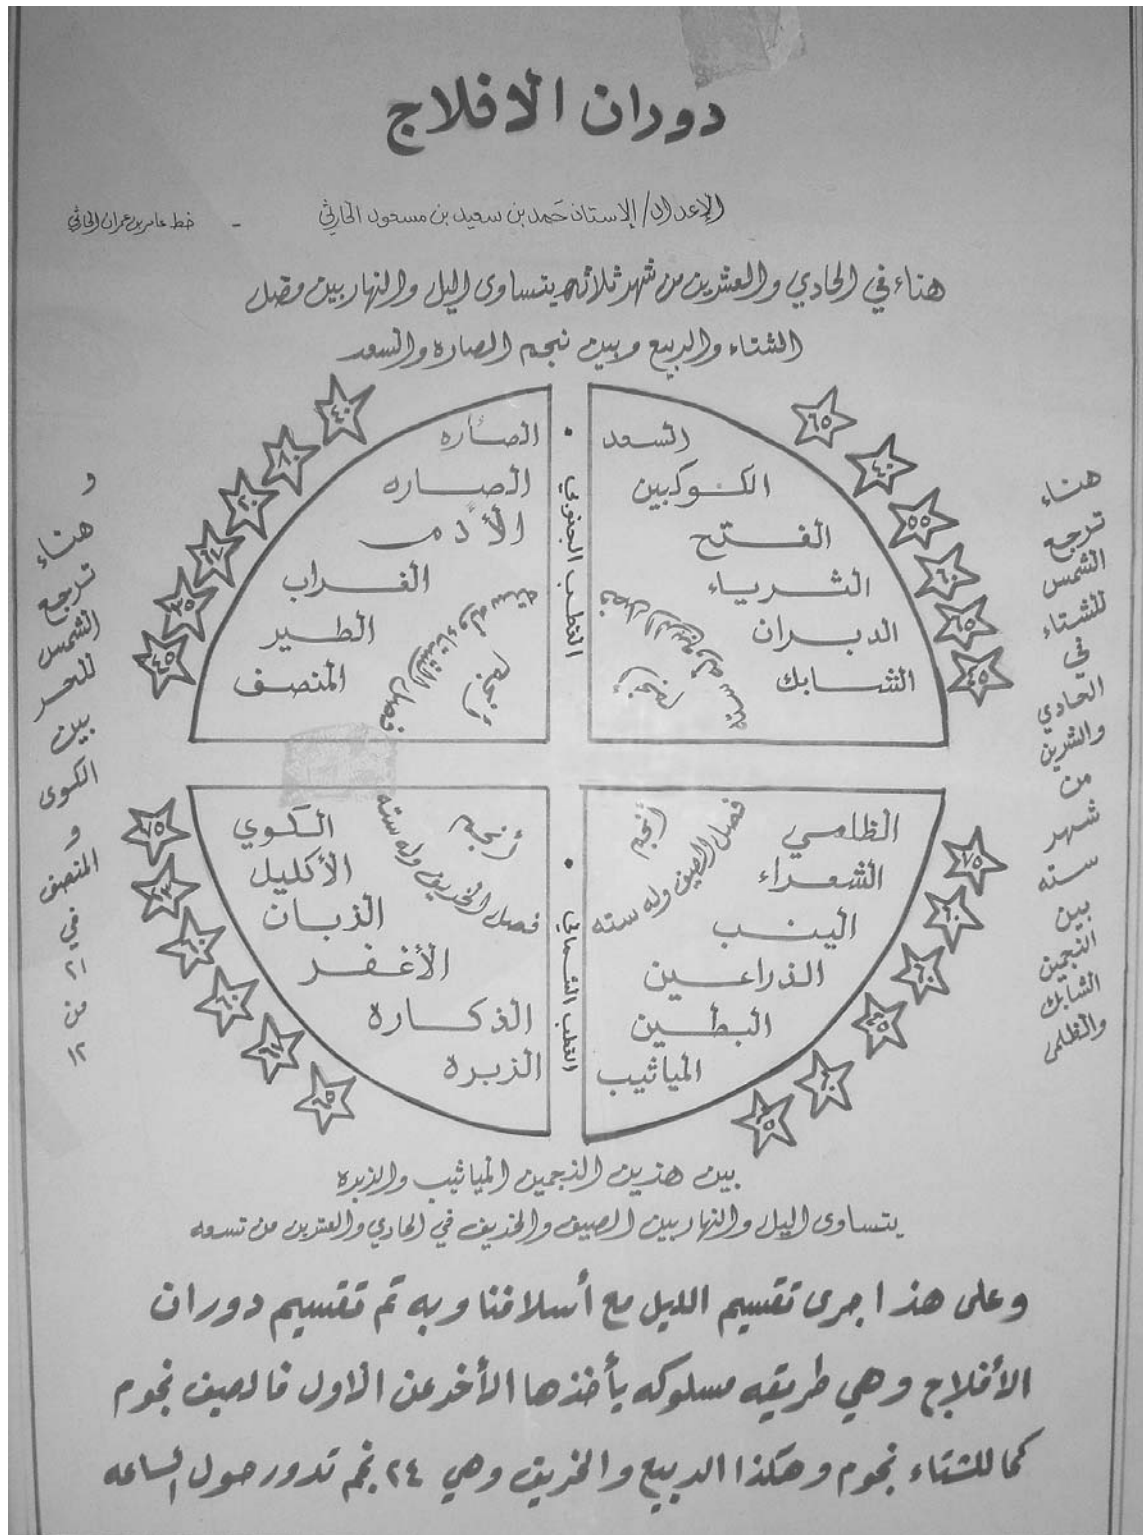 دوران الافلاج
الإعداد/ الاستاذ حمد بن سعيد بن مسعود الحارثي - خط عامر بن عمران الحارثي
هناء في الحادي والعشرين من شهر ثلاثه يتساوى اليل والنهار بين فصل
الشتاء والربيع وبين نجم الصاره والسعد
السعد
الكوكبين
الفتح
الثرياء
الدبران
الشابك
فصل الربيع وله سته
أنجم
٦٥
٤٠
٥٥
٦٠
٦٥
٤٥
القطب الجنوبي
الصاره
الصاره
الأدم
الغراب
الطير
المنصف
فصل الشتاء وله سته
أنجم
٤٠
٨٠
٢٠
٦٧
٣٥
٤٥
هناء
ترجع
الشمس
للشتاء
في
الحادي
والشرين
من
شهر
سته
بين
النجمين
الشابك
والظلمي
و
هناء
ترجع
الشمس
للحر
بين
الكوى
و
المنصف
في
٢١
من
١٢
الظلمي
الشعراء
الينب
الذراعين
البطين
المياثيب
أنجم
فصل الصيف وله سته
٧٥
٦٠
٦٠
٦٠
القطب الشمالي
الكوي
الأكليل
الزبان
الأغفر
الذكاره
الزبره
أنجم
فصل الخريف وله سته
٧٥
٦٠
٦٠
٦٥
بين هذين النجمين المياثيب والزبره
يتساوى اليل والنهار بين الصيف والخريف في الحادي والعشرين من تسعه
وعلى هذا جرى تقسيم الليل مع أسلافنا وبه تم تقسيم دوران
الأفلاج وهي طريقه مسلوكه يأخذها الأخر عن الاول فالصيف نجوم
كما للشتاء نجوم وهكذا الربيع والخريف وهي ٢٤ نجم تدور حول الساعه